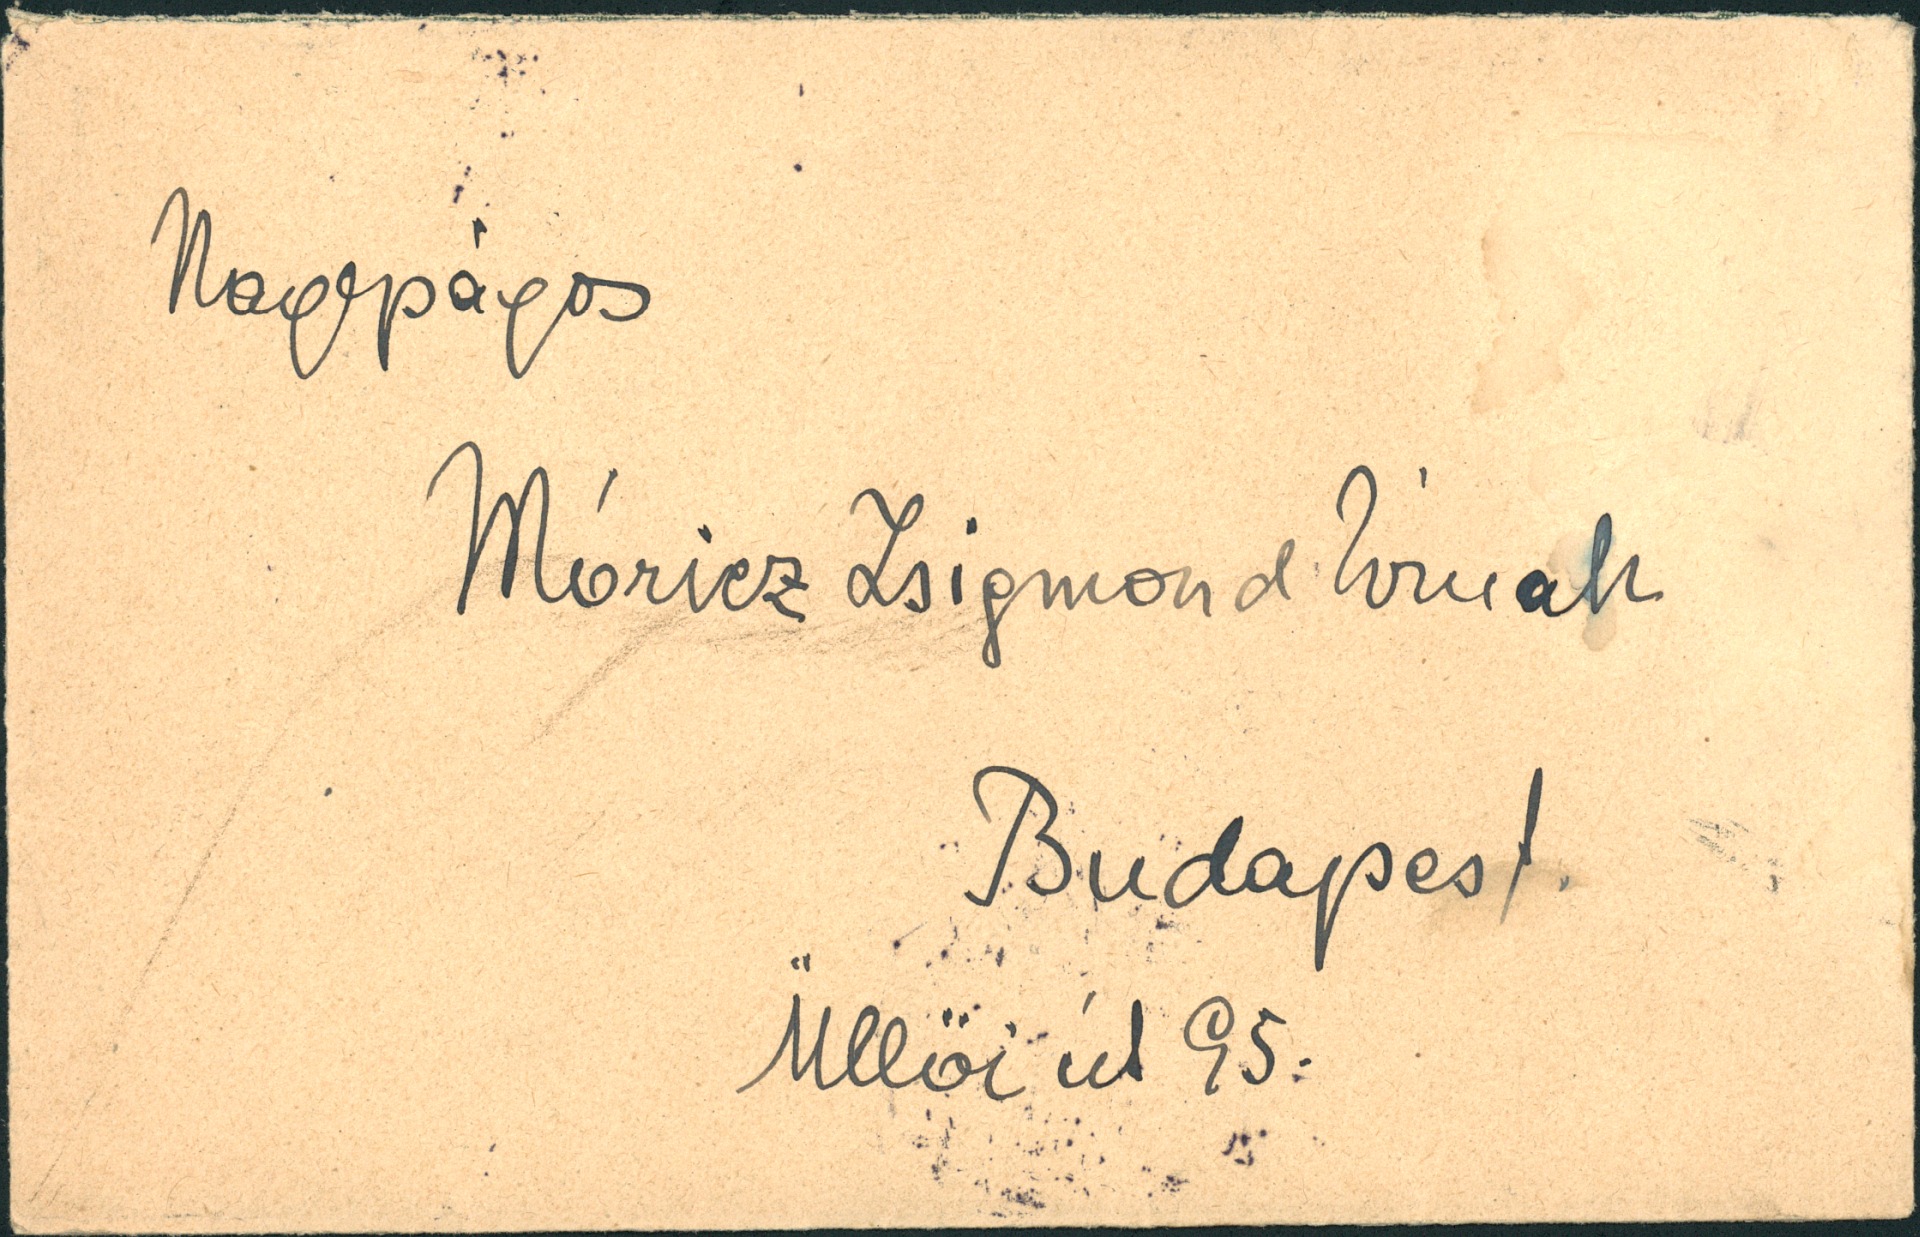 Nagyságos
Móricz Zsigmond Úrnak
Budapest.
Üllői út 95.